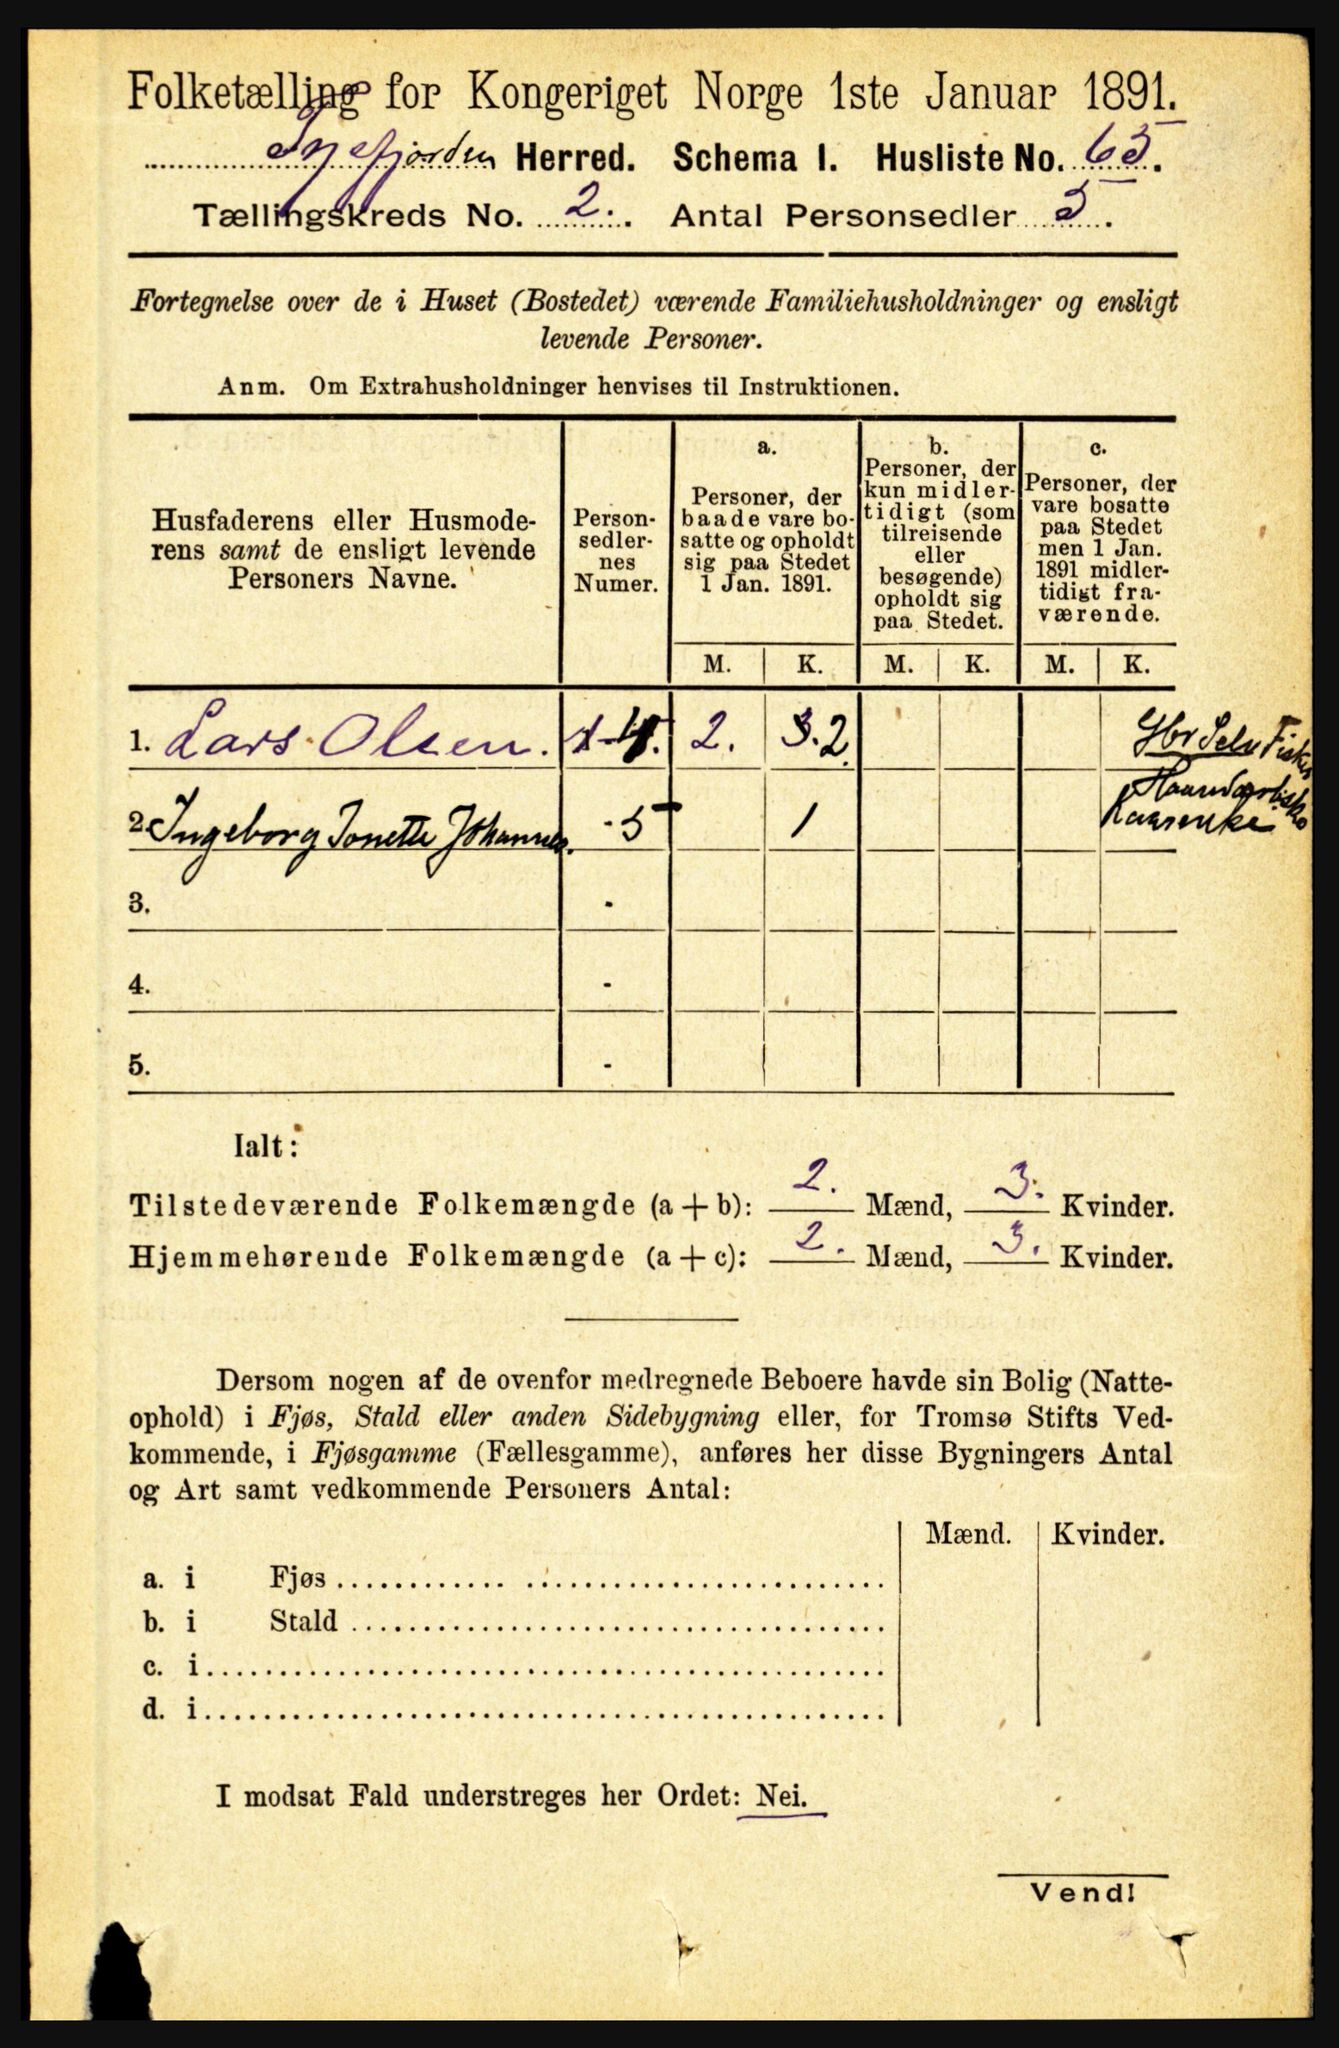 Folketælling for Kongeriget Norge 1ste Januar 1891.
Herred. Schema I. Husliste No. 65.
Tællingskreds No. 2. Antal Personsedler 5.
Fortegnelse over de i Huset (Bostedet) værende Familiehusholdninger og ensligt
levende Personer.
Anm. Om Extrahusholdninger henvises til Instruktionen.
Husfaderens eller Husmode-
rens samt de ensligt levende
Personers Navne.
Person-
sedler-
nes
Numer.
a.
Personer, der
baade vare bo-
satte og opholdt
sig paa Stedet
1 Jan. 1891.
b.
Personer, der
kun midler-
tidigt (som
tilreisende
eller
besøgende)
opholdt sig
paa Stedet.
c.
Personer, der
vare bosatte
paa Stedet
men 1 Jan.
1891 midler-
tidigt fra-
værende.
M. K. M. K. M. K.
1. Lars Olsen. 1-4. 2. 3. 2 Hbr Selv Fisker
2. Ingeborg Jonette Johannes. - 5 1
3. -
4. -
5. -
Ialt:
Tilstedeværende Folkemængde (a + b): 2. Mænd, 3. Kvinder.
Hjemmehørende Folkemængde (a + c): 2. Mænd, 3. Kvinder.
Dersom nogen af de ovenfor medregnede Beboere havde sin Bolig (Natte-
ophold) i Fjøs, Stald eller anden Sidebygning eller, for Tromsø Stifts Ved-
kommende, i Fjøsgamme (Fællesgamme), anføres her disse Bygningers Antal
og Art samt vedkommende Personers Antal:
Mænd. Kvinder.
a. i Fjøs
b. i Stald
c. i
d. i
I modsat Fald understreges her Ordet: Nei.
Vend!